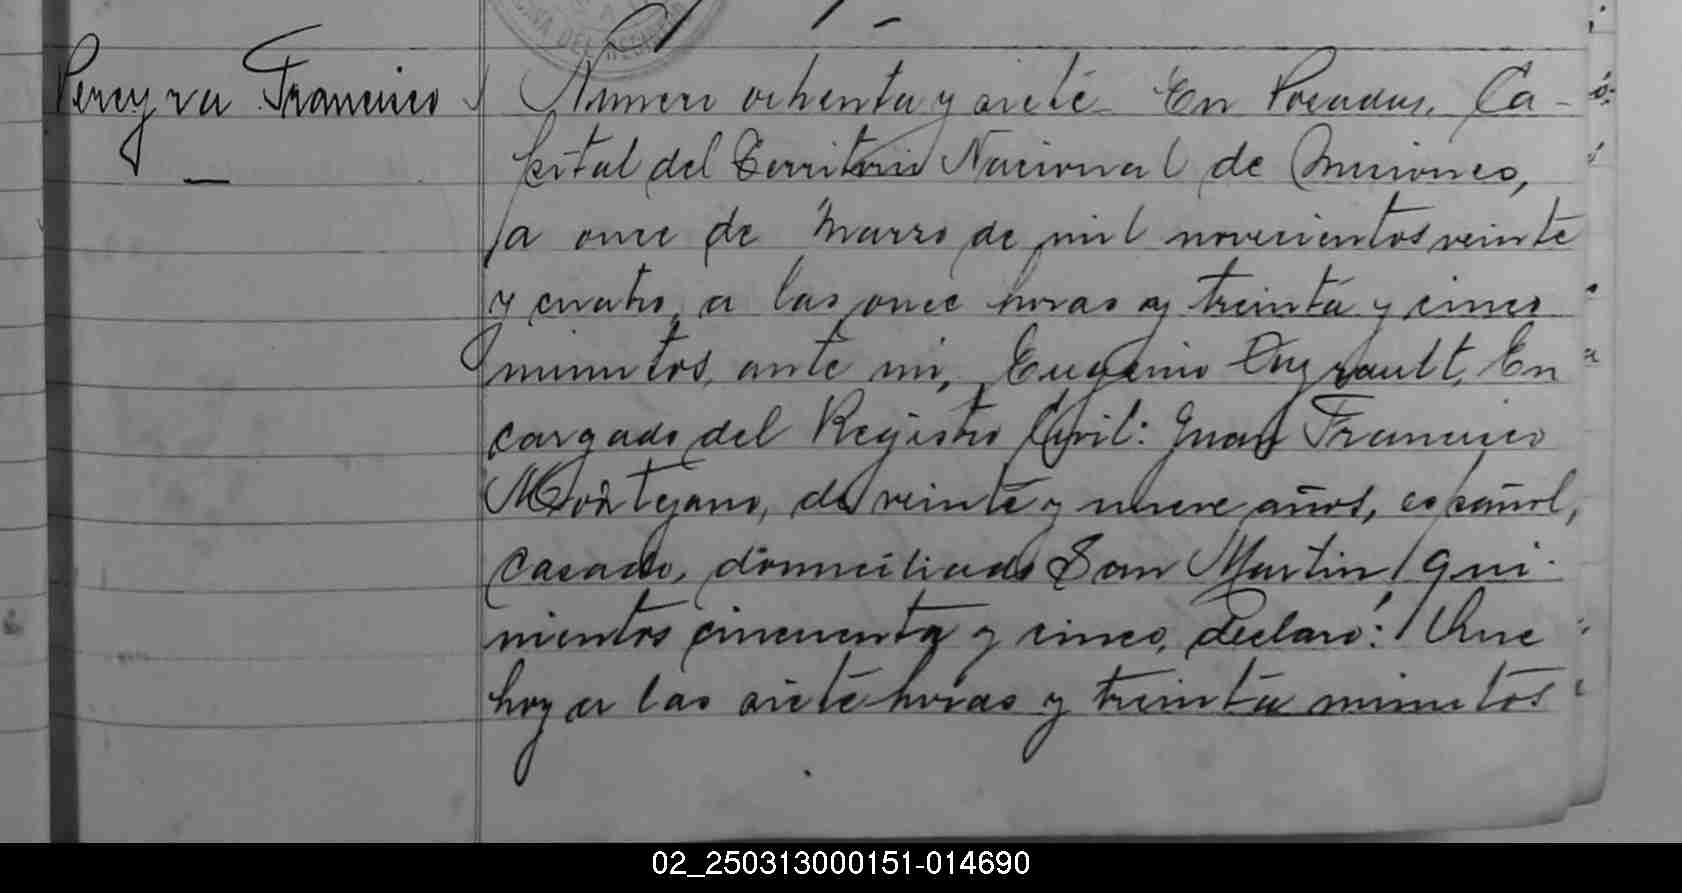 Pereyra Francisco
Número ochenta y siete En Posadas, Ca-
pital del Territorio Nacional de Misiones,
a once de Marzo de mil novecientos veinte
y cuatro, a las once horas y treinta y cinco
minutos, ante mi, Eugenio En
cargado del Registro Civil: Juan Francisco
Montejano, de veinte y nueve años, español,
casado, domiciliado San Martin, qui-
nientos cincuenta y cinco, declaró: Que
hoy a las siete horas y treinta minutos
02_250313000151-014690